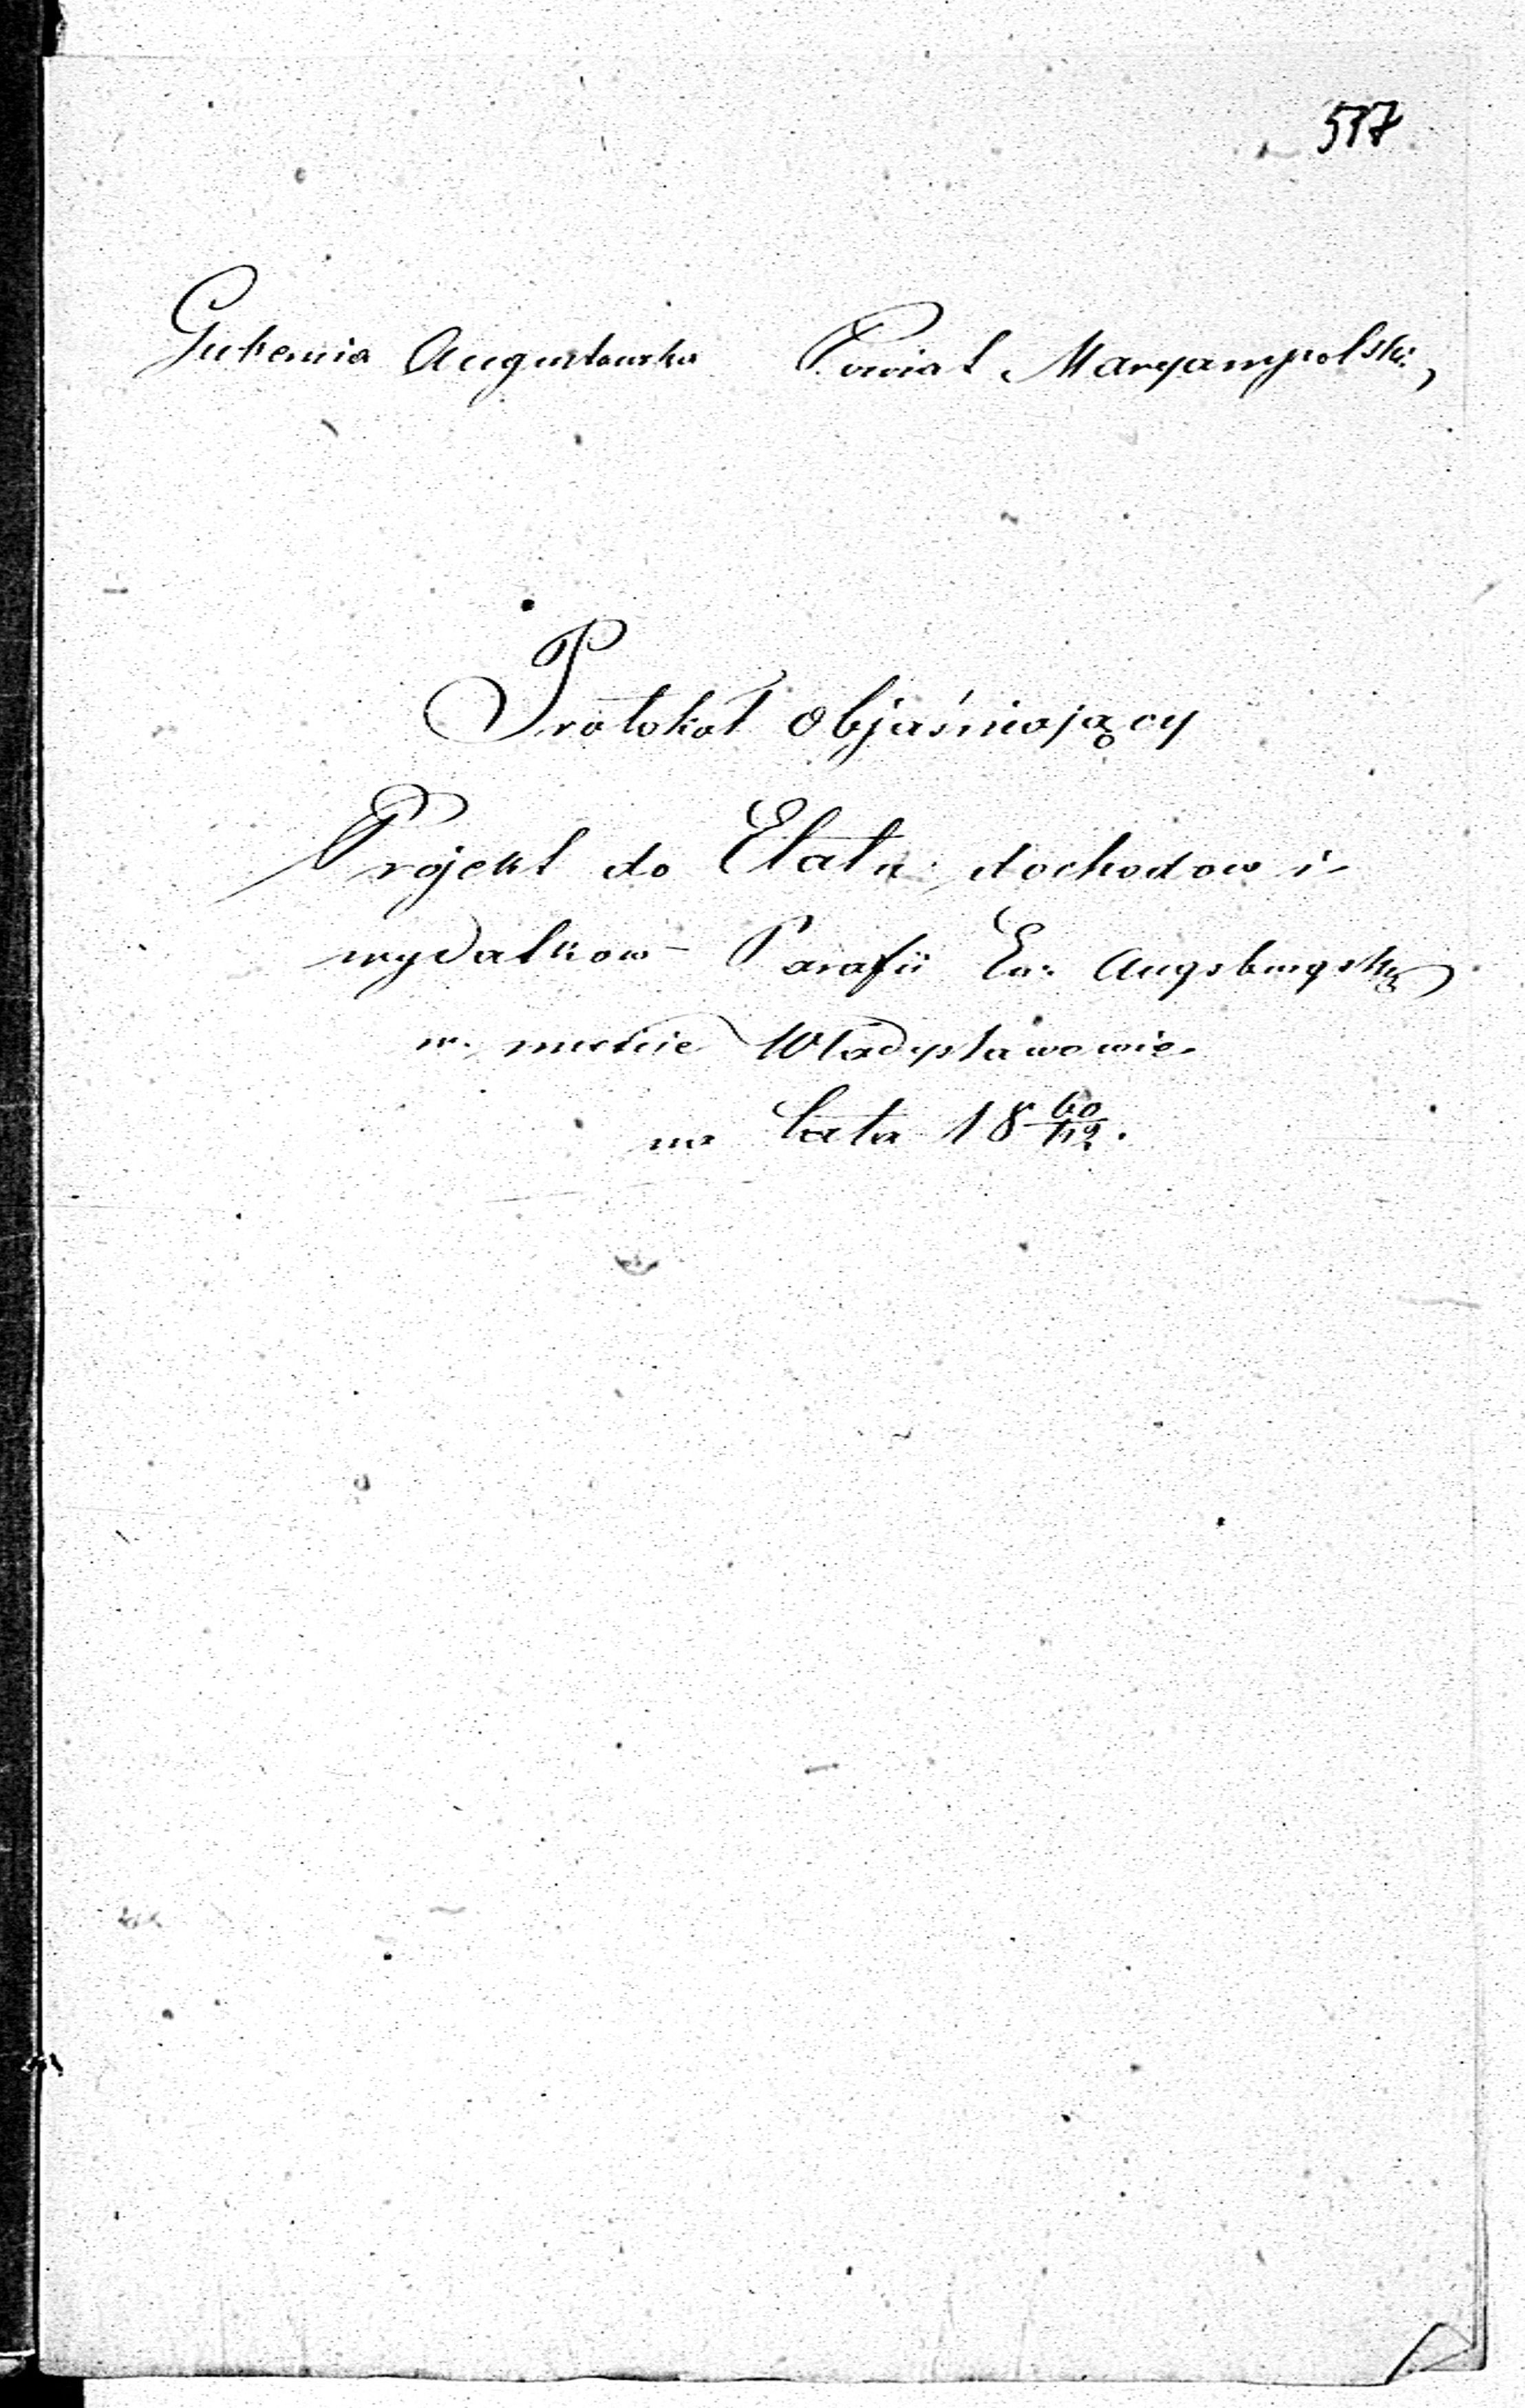 517
Gubernia Augustowska Powiat Maryampolski,
Protokół objaśniający
Projekt do Etatu dochodow i
wydatkow Parafii Ew: Augsburgskiej
w mieście Władysławowie
na lata 18 60/62.